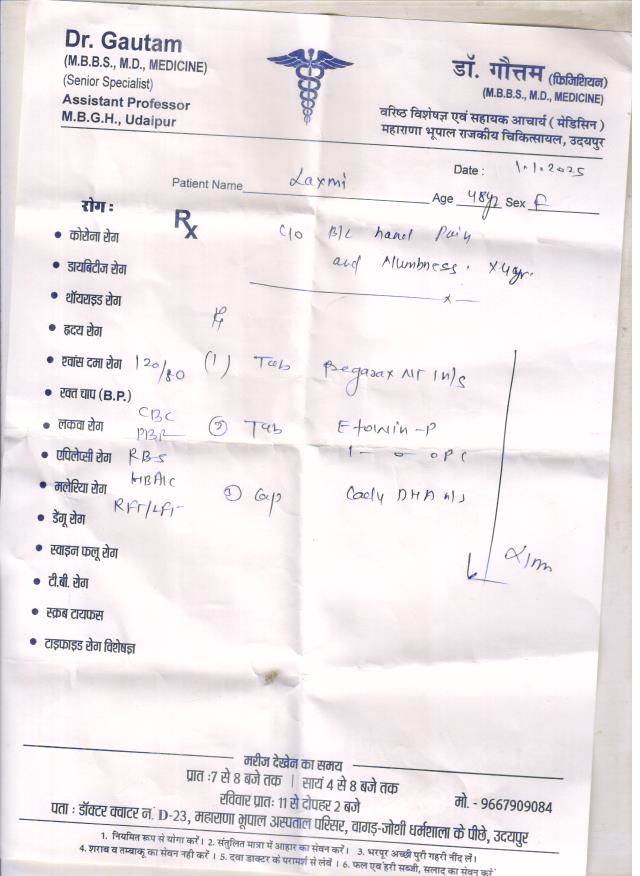 Dr. Gautam
(M.B.B.S., M.D., MEDICINE)
(Senior Specialist)
Assistant Professor
M.B.G.H., Udaipur
डॉ. गौत्तम (फिजिशियन)
(M.B.B.S., M.D., MEDICINE)
वरिष्ठ विशेषज्ञ एवं सहायक आचार्य ( मेडिसिन )
महाराणा भूपाल राजकीय चिकित्सायल, उदयपुर
Date : 1.1.2025
Patient Name Laxmi
Age 48yr Sex F
रोग :
Rx
C/O B/L hand Pain
and Numbness. x 4yr.
• कोरोना रोग
• डायबिटीज रोग
• थॉयराइड रोग
• हृदय रोग
• श्वांस दमा रोग 120/80 (1) Tab Begarax NT 1 h/s
• रक्त चाप (B.P.)
CBC
• लकवा रोग (2) Tab
• एपिलेप्सी रोग RBS
• मलेरिया रोग HBA1C (3) Cap DHA
RFT/LFT
• डेंगू रोग
x 1m
• स्वाइन फलू रोग
• टी.बी. रोग
• स्क्रब टायफस
• टाइफाइड रोग विशेषज्ञ
मरीज देखेन का समय
प्रात :7 से 8 बजे तक | सायं 4 से 8 बजे तक
रविवार प्रातः 11 से दोपहर 2 बजे
मो. - 9667909084
पता : डॉक्टर क्वाटर नं. D-23, महाराणा भूपाल अस्पताल परिसर, वागड़-जोशी धर्मशाला के पीछे, उदयपुर
1. नियमित रूप से योगा करें। 2. संतुलित मात्रा में आहार का सेवन करें। 3. भरपूर अच्छी पुरी गहरी नींद लें।
4. शराब व तम्बाकू का सेवन नही करें । 5. दवा डाक्टर के परामर्श से लेवें । 6. फल एवं हरी सब्जी, सलाद का सेवन करें